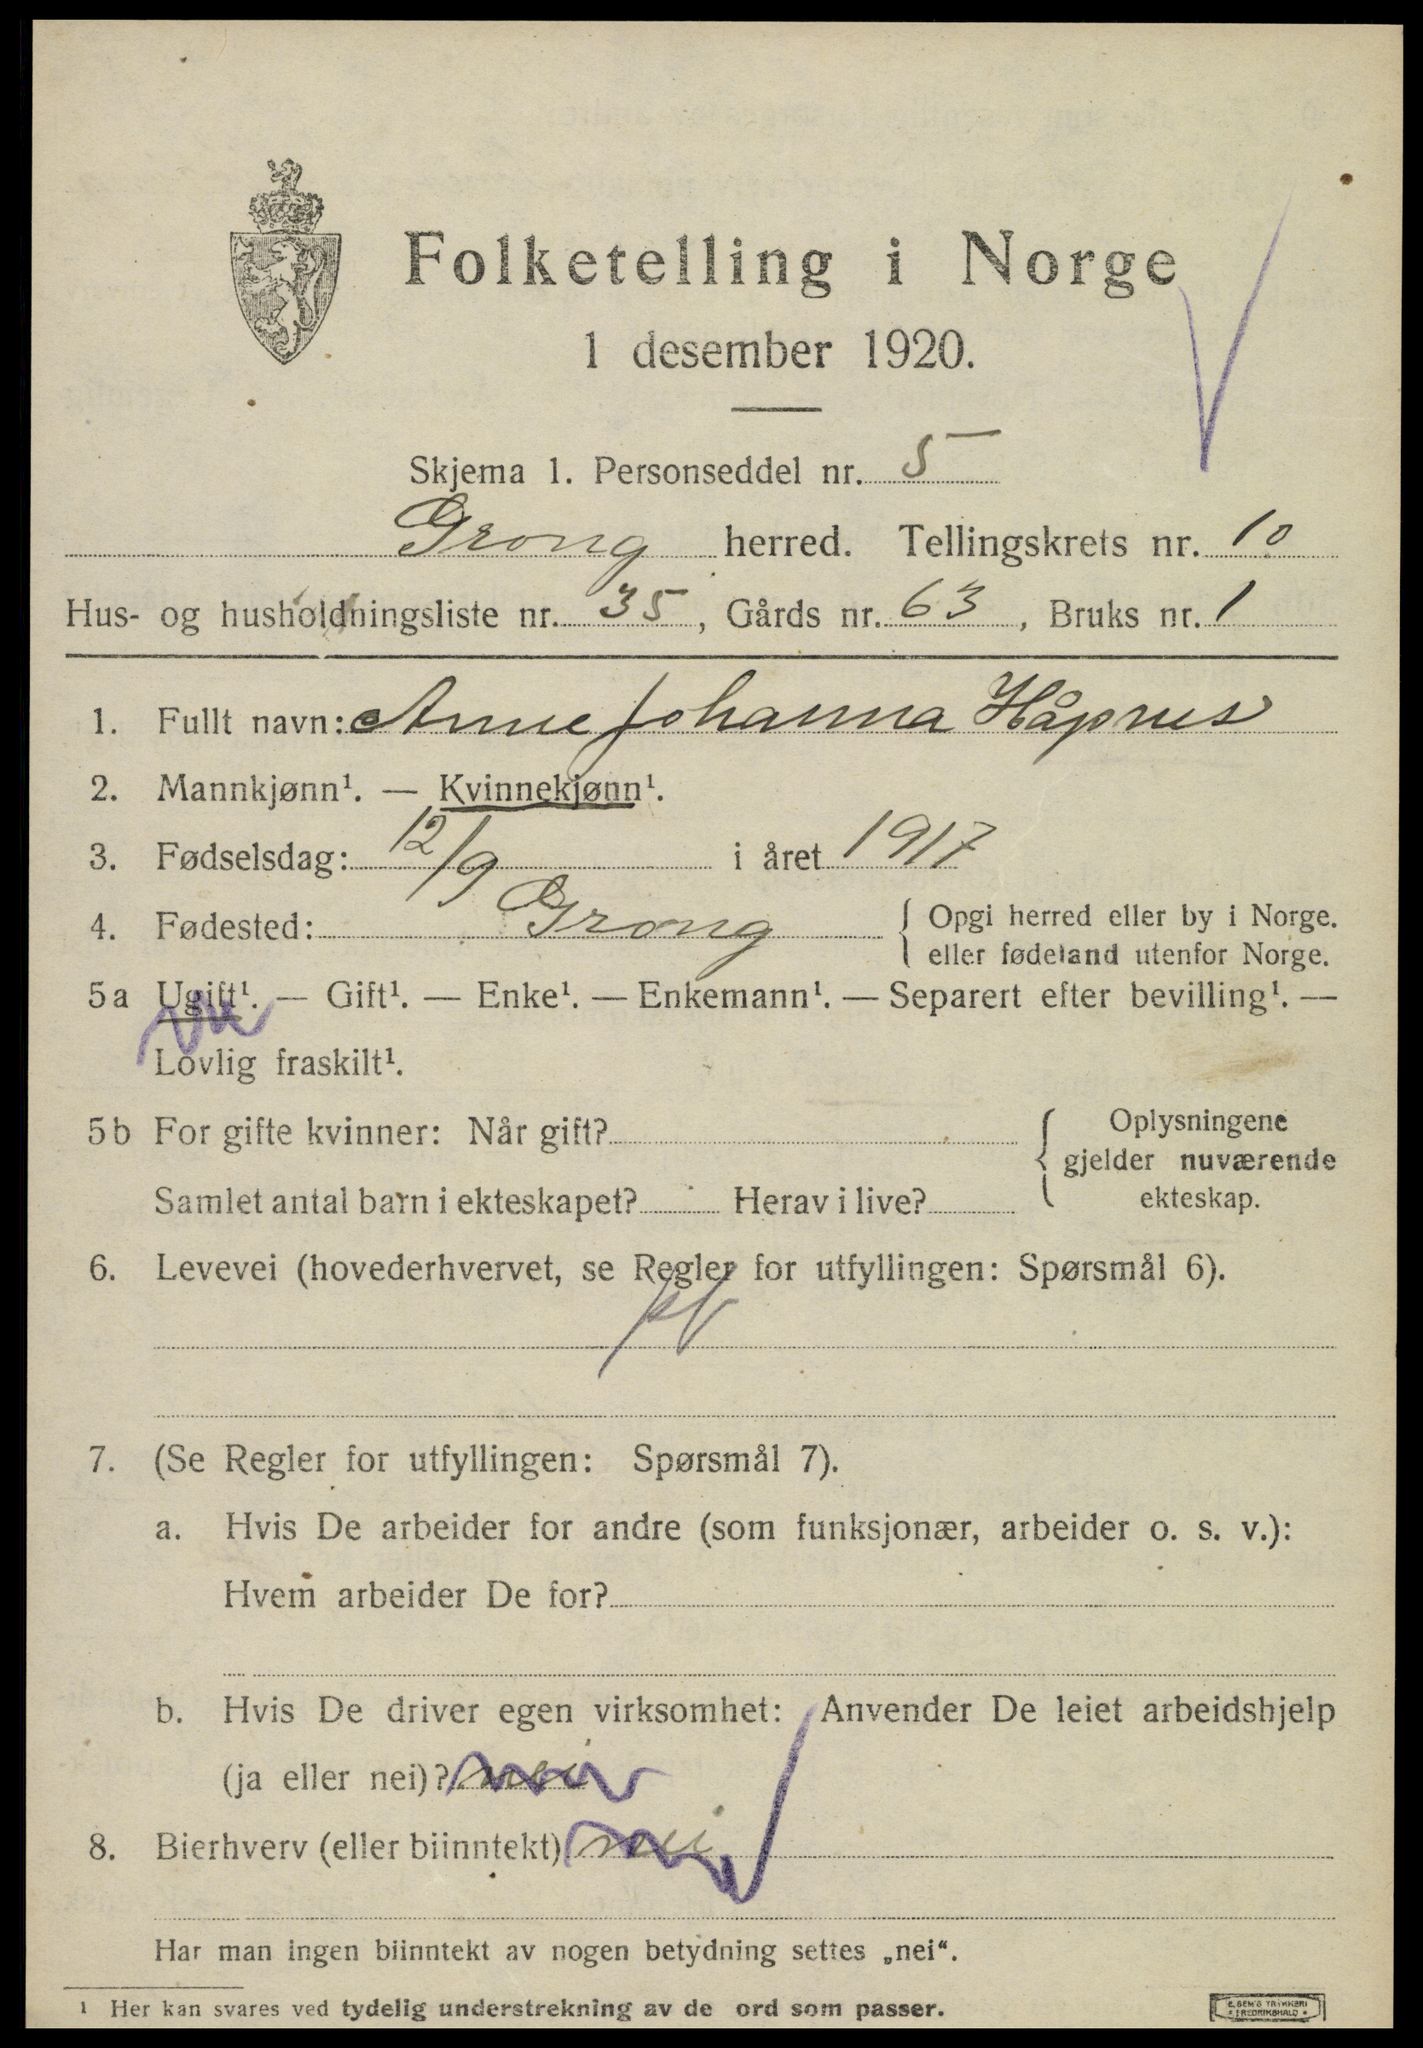 Folketelling i Norge
1 desember 1920.
Skjema 1. Personseddel nr. 5
Grong herred. Tellingskrets nr. 10
Hus- og husholdningsliste nr. 35, Gårds nr. 63, Bruks nr. 1
1. Fullt navn: Anne Johanna Håpnes
2. Mannkjønn¹. — Kvinnekjønn¹.
3. Fødselsdag: 12/9 i året 1917
4. Fødested: Grong { Opgi herred eller by i Norge.
eller fødeland utenfor Norge.
5a Ugift¹. — Gift¹. — Enke¹. — Enkemann¹. — Separert efter bevilling¹. —
Lovlig fraskilt¹.
5b For gifte kvinner: Når gift? { Oplysningene
gjelder nuværende
Samlet antal barn i ekteskapet? Herav i live? ekteskap.
6. Levevei (hovederhvervet, se Regler for utfyllingen: Spørsmål 6).
7. (Se Regler for utfyllingen: Spørsmål 7).
a. Hvis De arbeider for andre (som funksjonær, arbeider o. s. v.):
Hvem arbeider De for?
b. Hvis De driver egen virksomhet: Anvender De leiet arbeidshjelp
(ja eller nei)? nei
8. Bierhverv (eller biinntekt) nei
Har man ingen biinntekt av nogen betydning settes „nei“.
¹ Her kan svares ved tydelig understrekning av de ord som passer.
E. SEM'S TRYKKERI
FREDRIKSHALD